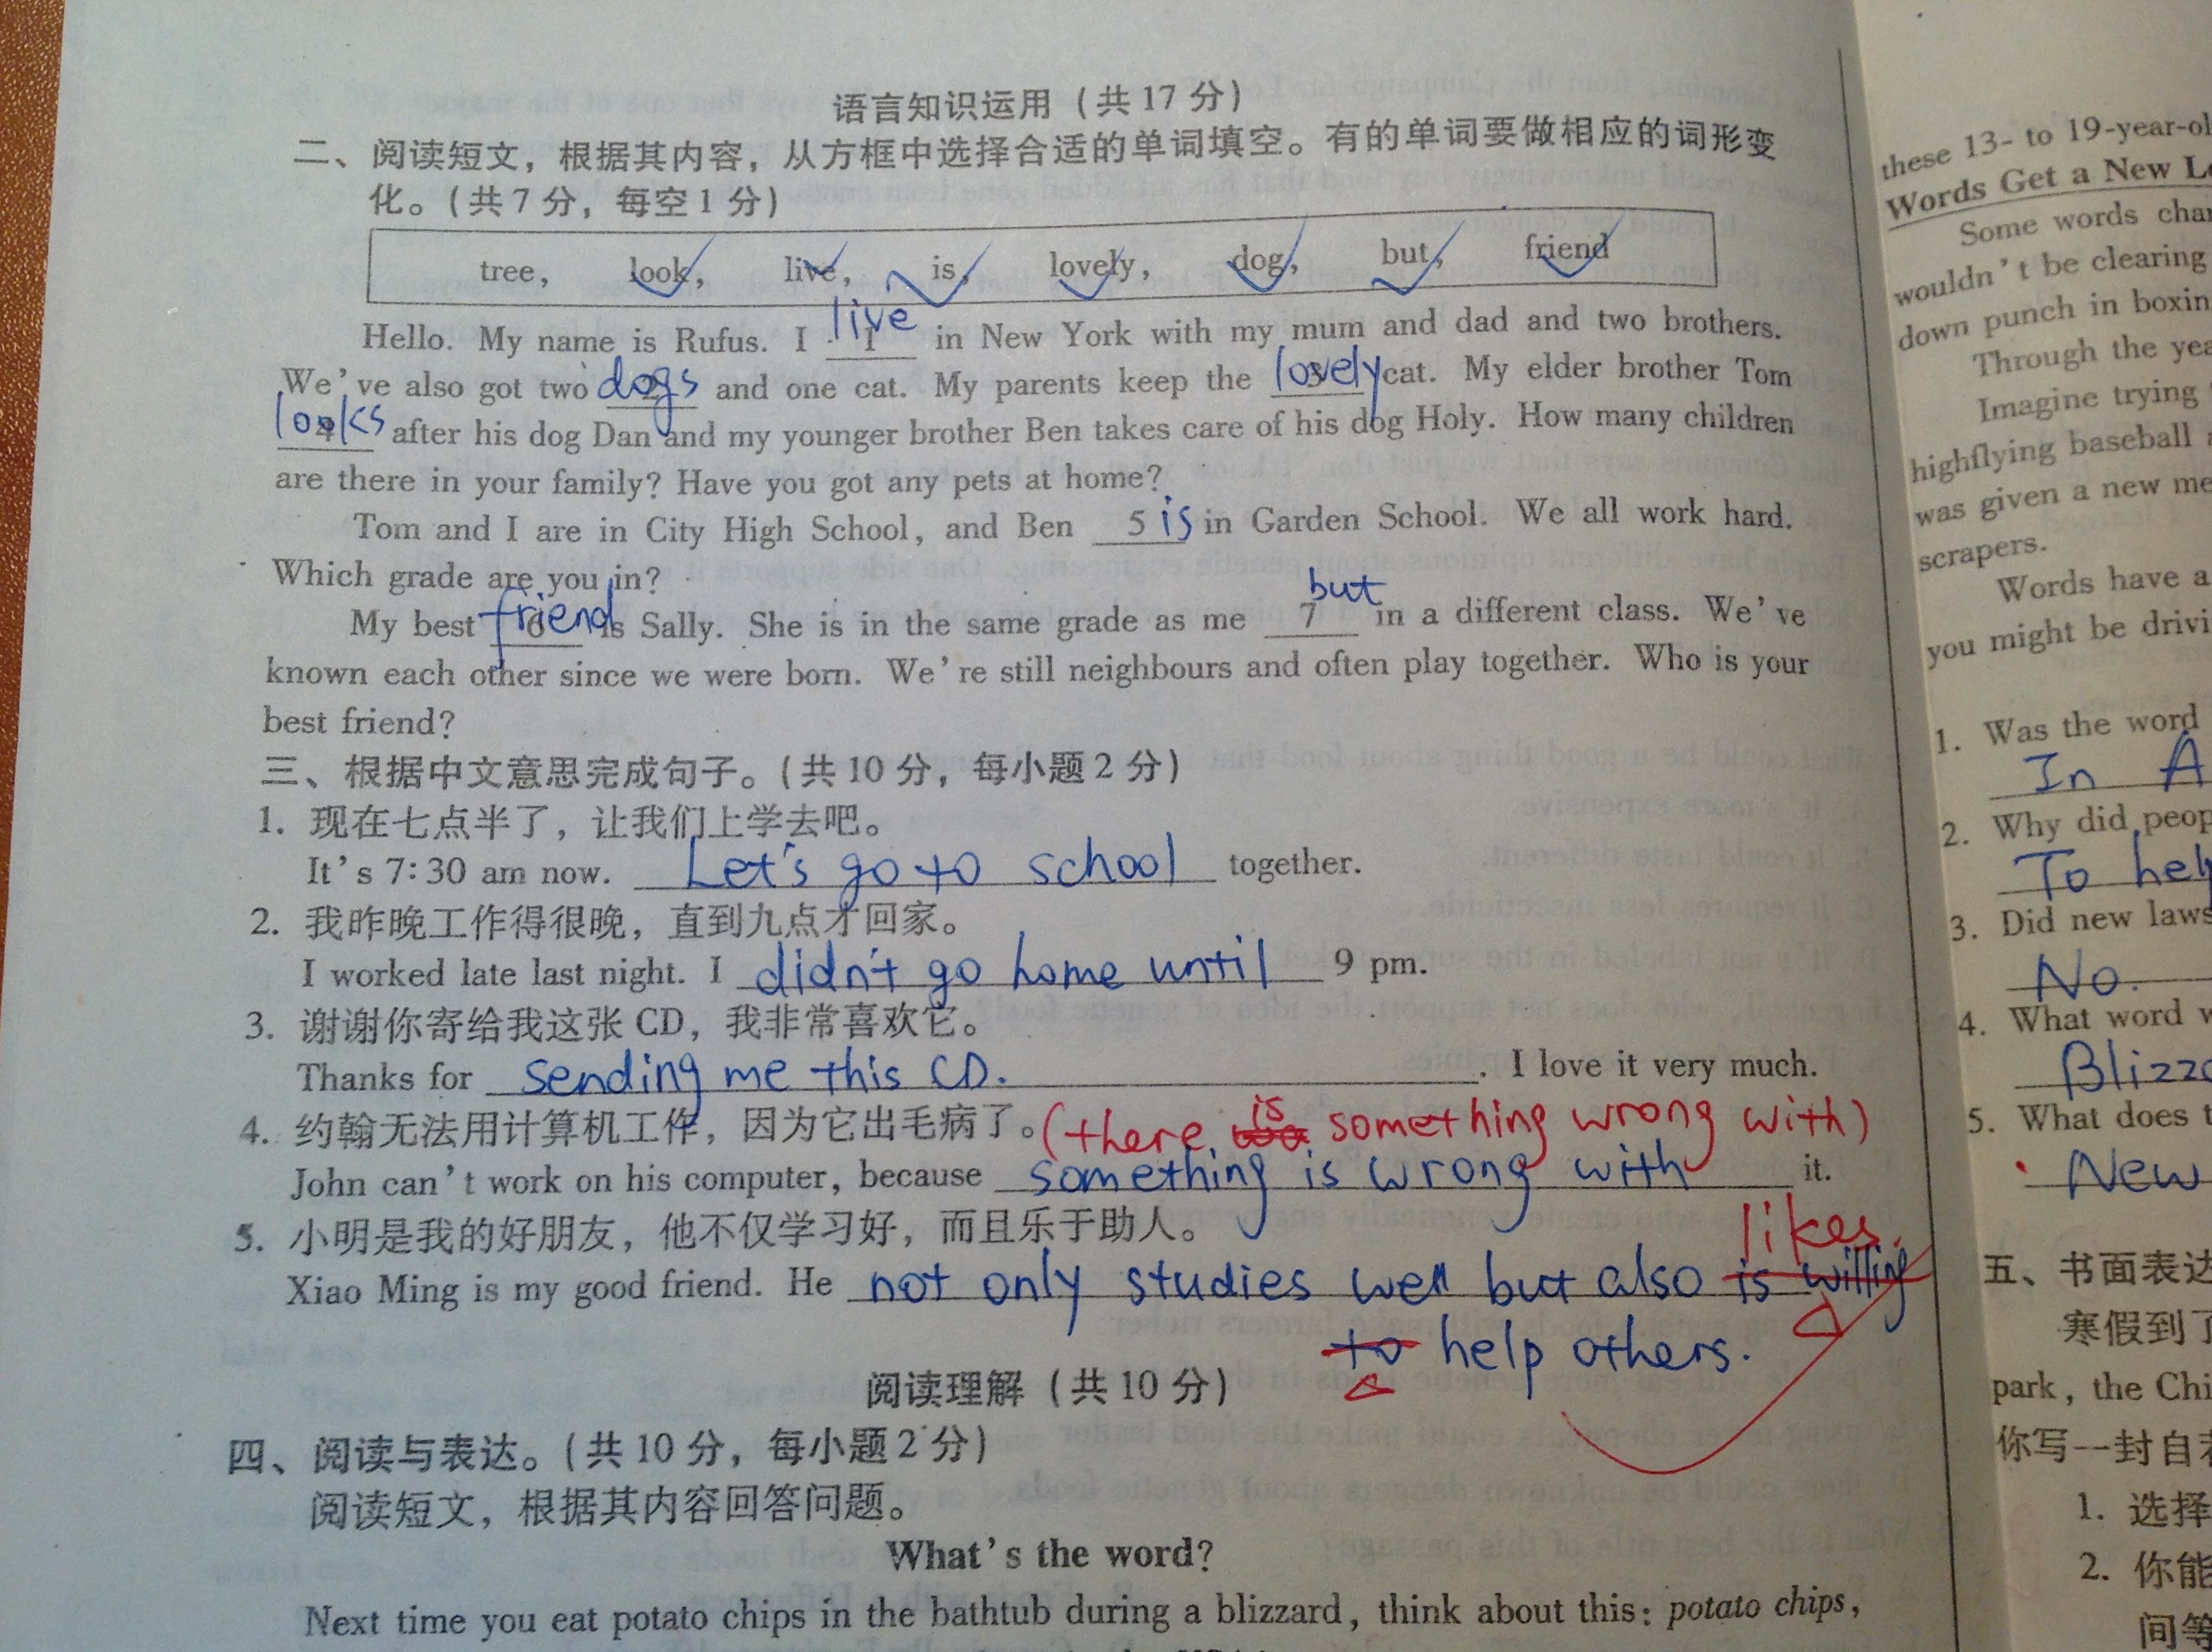 语言知识运用（共 17 分）
二、阅读短文，根据其内容，从方框中选择合适的单词填空。有的单词要做相应的词形变
化。（共 7 分，每空 1 分）
tree, look, live, is, lovely, dog, but, friend
Hello. My name is Rufus. I 1 live in New York with my mum and dad and two brothers.
We've also got two 2 dogs and one cat. My parents keep the 3 lovely cat. My elder brother Tom
4 looks after his dog Dan and my younger brother Ben takes care of his dog Holy. How many children
are there in your family? Have you got any pets at home?
Tom and I are in City High School, and Ben 5 is in Garden School. We all work hard.
Which grade are you in?
My best 6 friend is Sally. She is in the same grade as me 7 but in a different class. We've
known each other since we were born. We're still neighbours and often play together. Who is your
best friend?
三、根据中文意思完成句子。（共 10 分，每小题 2 分）
1. 现在七点半了，让我们上学去吧。
It's 7:30 am now. Let's go to school together.
2. 我昨晚工作得很晚，直到九点才回家。
I worked late last night. I didn't go home until 9 pm.
3. 谢谢你寄给我这张 CD，我非常喜欢它。
Thanks for sending me this CD. . I love it very much.
4. 约翰无法用计算机工作，因为它出毛病了。(there is something wrong with)
John can't work on his computer, because something is wrong with it.
5. 小明是我的好朋友，他不仅学习好，而且乐于助人。
likes
Xiao Ming is my good friend. He not only studies well but also is willing
to help others.
阅读理解（共 10 分）
四、阅读与表达。（共 10 分，每小题 2 分）
阅读短文，根据其内容回答问题。
What's the word?
Next time you eat potato chips in the bathtub during a blizzard, think about this: potato chips,
these 13- to 19-year-ol
Words Get a New L
Some words cha
wouldn't be clearing
down punch in boxin
Through the yea
Imagine trying
highflying baseball
was given a new me
scrapers.
Words have a
you might be drivi
1. Was the word
In A
2. Why did peop
To help
3. Did new laws
No.
4. What word w
Blizz
5. What does t
New
五、书面表达
寒假到了
park, the Chi
你写一封自
1. 选择
2. 你能
间等